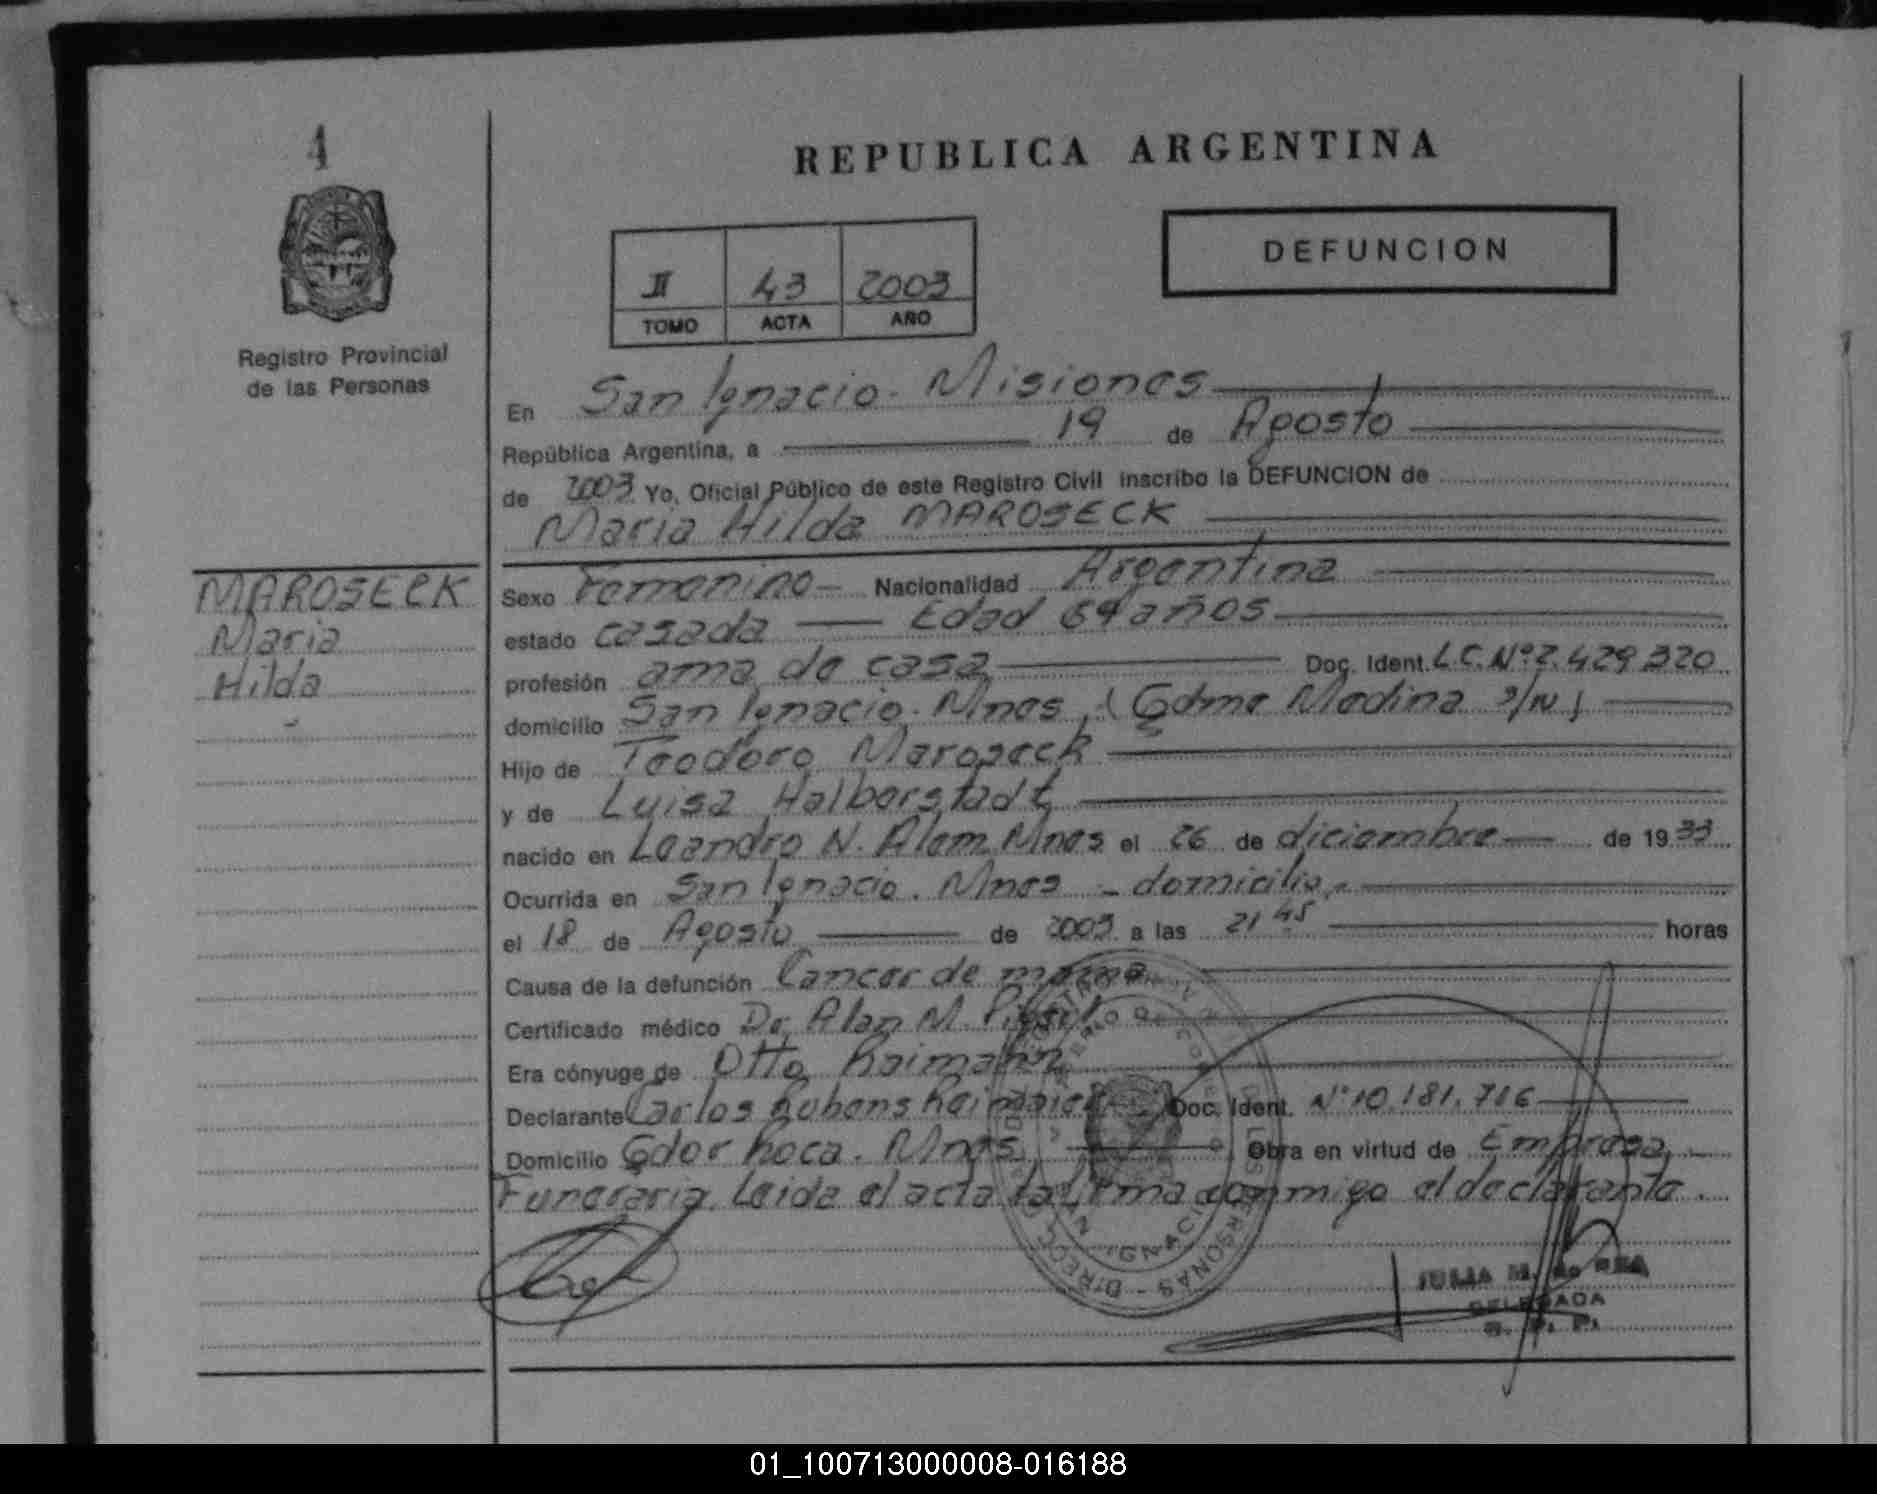 1
REPUBLICA ARGENTINA
DEFUNCION
II 43 2003
TOMO ACTA AÑO
Registro Provincial
de las Personas
En San Ignacio - Misiones
República Argentina, a 19 de Agosto
de 2003 Yo, Oficial Público de este Registro Civil inscribo la DEFUNCION de
Maria Hilda MAROSECK
MAROSECK
Maria
Hilda
Sexo Femenino - Nacionalidad Argentina
estado casada Edad 69 años
profesión ama de casa Doc. Ident. L.C. Nº 2.429.320
domicilio San Ignacio. Mnes, (Gdme Medina s/N)
Hijo de Teodoro Maroseck
y de Luisa Halberstadt
nacido en Leandro N. Alem Mnes el 26 de diciembre de 1933
Ocurrida en San Ignacio. Mnes - domicilio
el 18 de Agosto de 2003 a las 21 45 horas
Causa de la defunción Cancer de mama
Certificado médico Dr. Alan M.
Era cónyuge de Otto Raimann
Declarante Carlos Rubens Doc. Ident. Nº 10.181.716
Domicilio Gdor Roca. Mnes Obra en virtud de Empresa
Funeraria. Leida el acta la firma conmigo el declarante.
IGNACIO
JULIA M. de REA
DELEGADA
R. P. P.
01_100713000008-016188